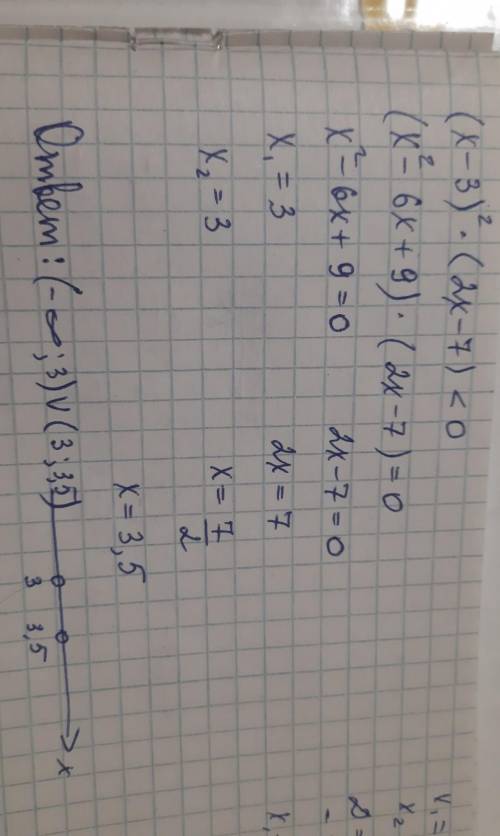 (x-3)² · (2x-7) < 0
(x² - 6x + 9) · (2x-7) = 0
x² - 6x + 9 = 0    2x-7 = 0
x₁ = 3    2x = 7
x₂ = 3    x = 7/2
x = 3,5
Ответ: (-∞; 3) ∨ (3; 3,5)
3    3,5    x
V₁ =
x₂
D =
x₁